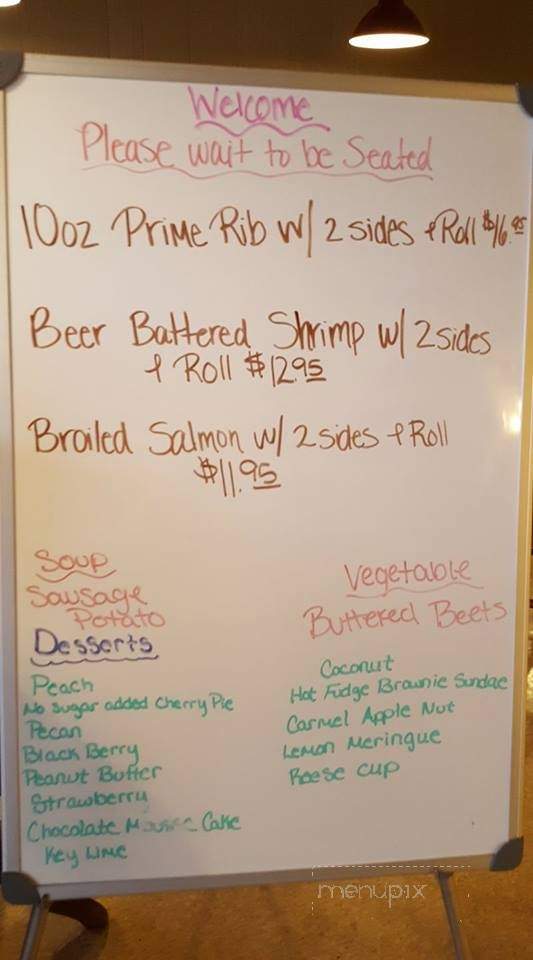 Welcome
Please wait to be Seated
10oz Prime Rib w/ 2 sides + Roll $16.95
Beer Battered Shrimp w/ 2 sides
+ Roll $12.95
Broiled Salmon w/ 2 sides + Roll
$11.95
Soup
Sausage
Potato
Vegetable
Buttered Beets
Desserts
Peach
No Sugar added Cherry Pie
Pecan
Black Berry
Peanut Butter
Strawberry
Chocolate Mousse Cake
Key Lime
Coconut
Hot Fudge Brownie Sundae
Carmel Apple Nut
Lemon Meringue
Reese Cup
menupix